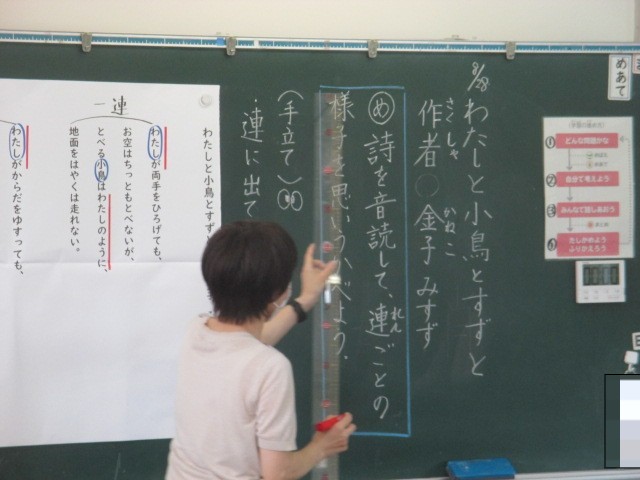 めあて
9/28 わたしと小鳥とすずと
さくしゃ かねこ
作者 金子 みすず
め 詩を音読して、連ごとの
れん
様子を思いうかべよう。
(手立て)
・連に出て
どんな問題かな
自分で考えよう
みんなで話しあおう
たしかめよう
ふりかえろう
わたしと小鳥とすず
一連
わたしが両手をひろげても、
お空はちっともとべないが、
とべる小鳥はわたしのように、
地面をはやくは走れない。
わたしがからだをゆすっても、